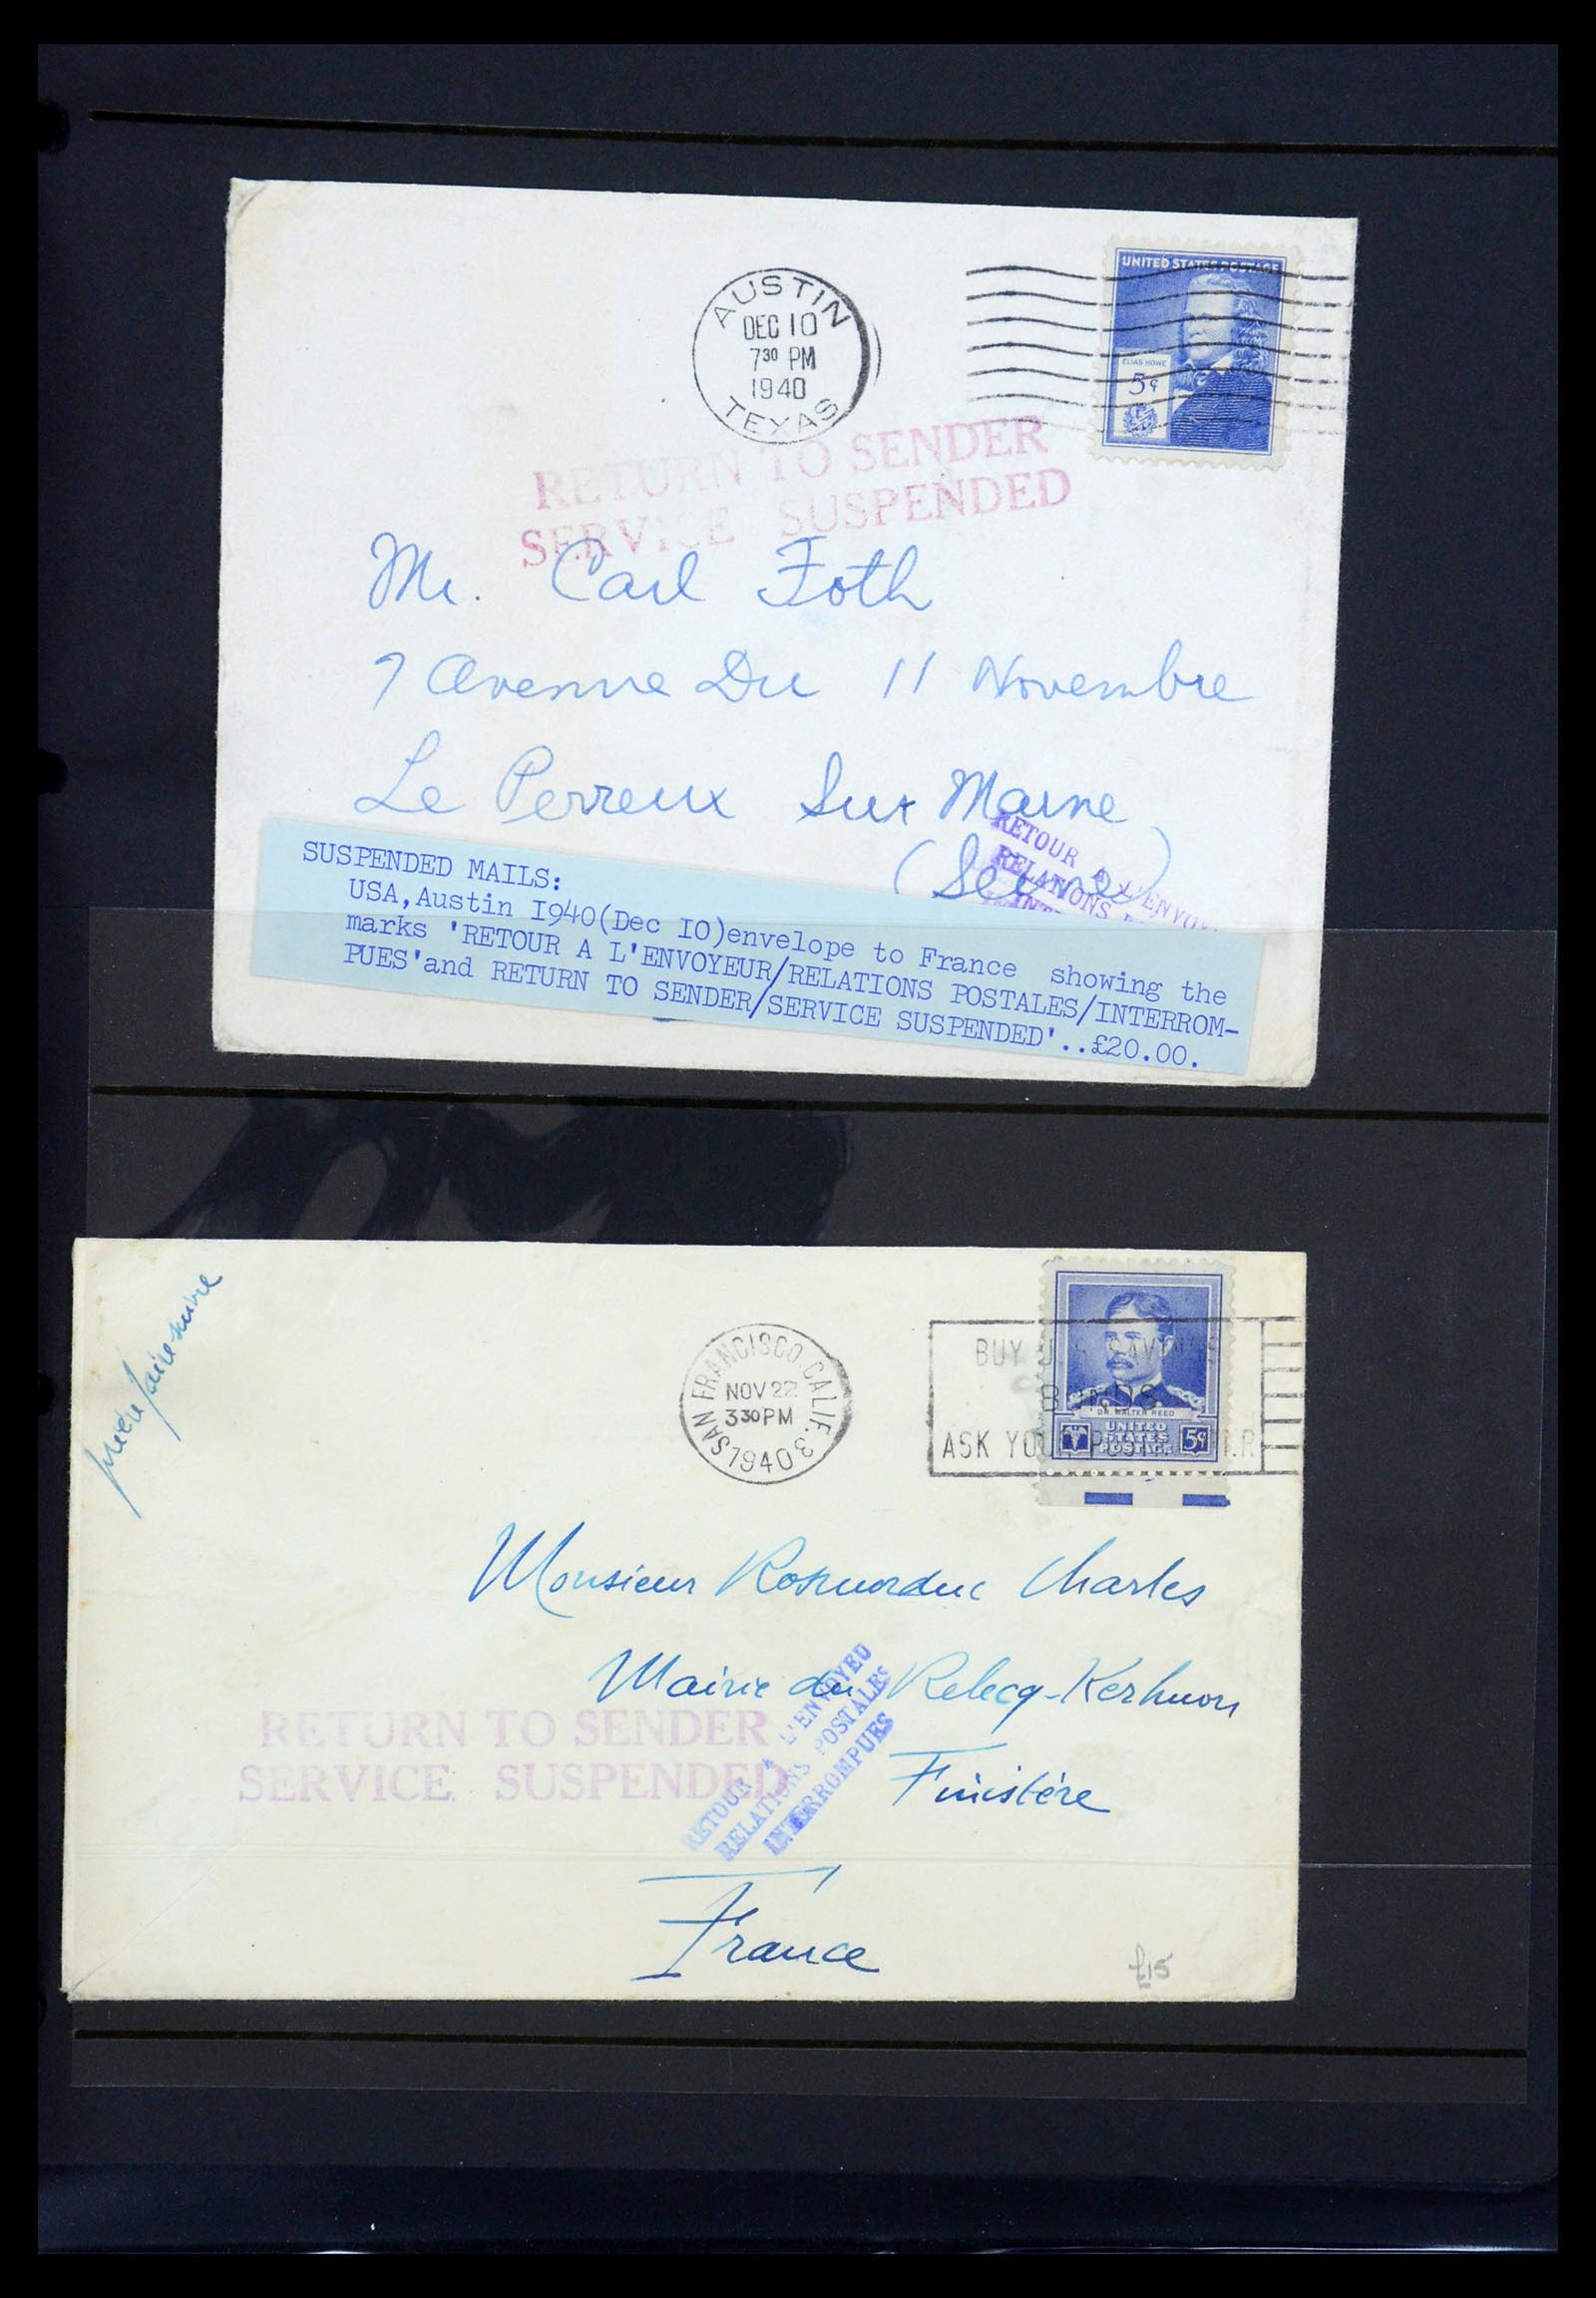 AUSTIN
DEC 10
7 30 PM
1940
TEXAS
UNITED STATES POSTAGE
ELIAS HOWE
5¢
RETURN TO SENDER
SERVICE SUSPENDED
Mr. Carl Foth
7 Avenue Du 11 Novembre
Le Perreux Sur Marne
(Seine)
RETOUR A L'ENVOY
RELATIONS
INT
SUSPENDED MAILS:
USA,Austin I940(Dec IO)envelope to France showing the
marks 'RETOUR A L'ENVOYEUR/RELATIONS POSTALES/INTERROM-
PUES'and RETURN TO SENDER/SERVICE SUSPENDED'..£20.00.
prière faire suivre
SAN FRANCISCO, CALIF. 3
NOV 22
3 30 PM
1940
BUY U.S. SAVINGS
BONDS
ASK YOUR POSTMASTER
DR. WALTER REED
UNITED
STATES
POSTAGE
5¢
Monsieur Charles
Mairie du Relecq-Kerhuon
Finistère
France
RETURN TO SENDER
SERVICE SUSPENDED
RETOUR A L'ENVOYED
RELATIONS POSTALES
INTERROMPUES
£15